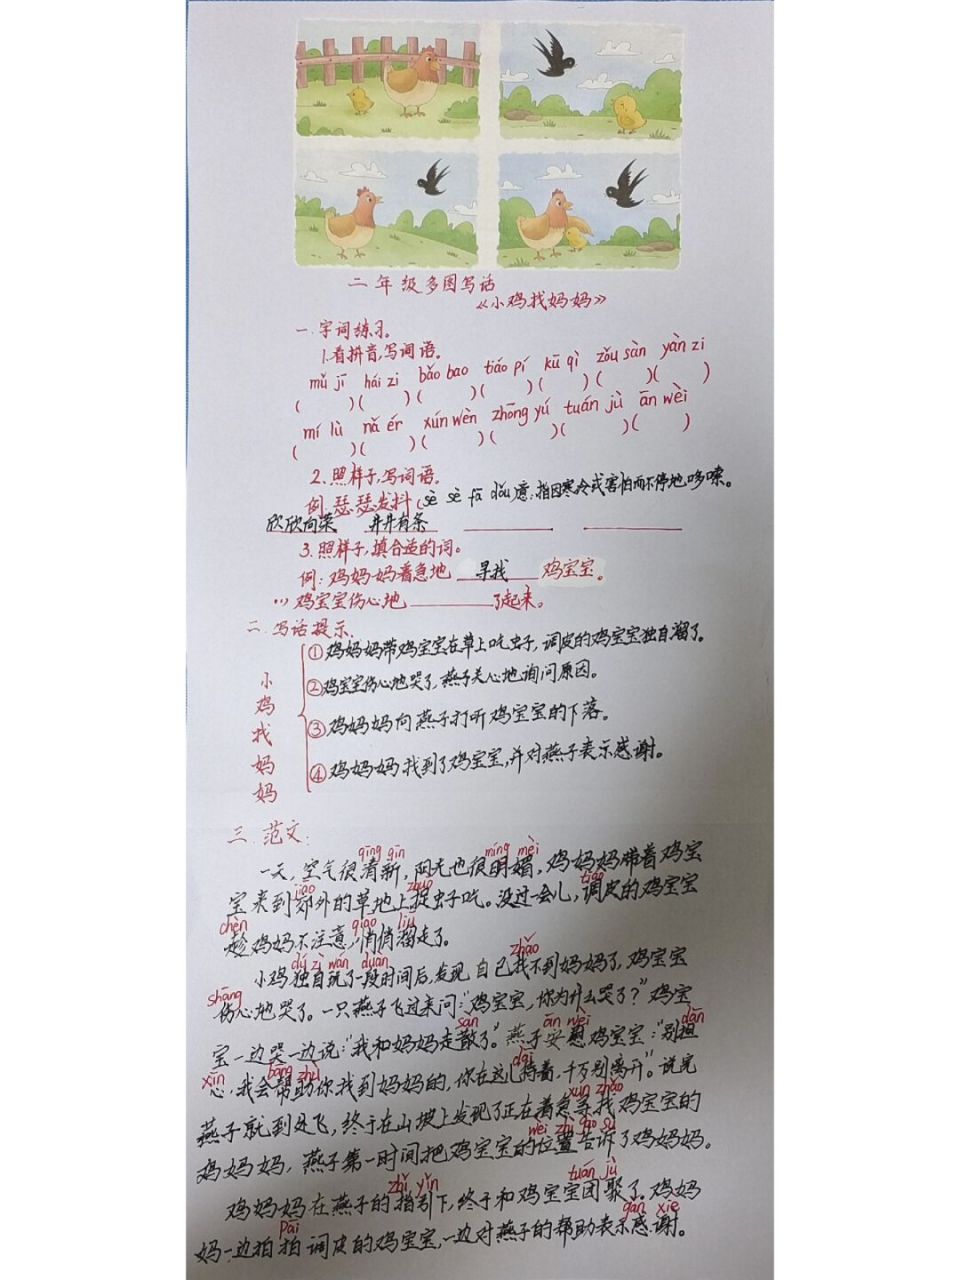 二年级多图写话
《小鸡找妈妈》
一.字词练习。
1.看拼音,写词语。
mǔ jī hái zi bǎo bao tiáo pí kū qì zǒu sàn yàn zi
( )( )( )( )( )( )( )
mí lù nǎ ér xún wèn zhōng yú tuán jù ān wèi
( )( )( )( )( )( )
2.照样子,写词语。
例.瑟瑟发抖(sè sè fā dǒu)意:指因寒冷或害怕而不停地哆嗦。
欣欣向荣 井井有条
3.照样子,填合适的词。
例:鸡妈妈着急地 寻找 鸡宝宝。
(1)鸡宝宝伤心地 了起来。
二.写话提示.
小鸡找妈妈
①鸡妈妈带鸡宝宝在草上吃虫子,调皮的鸡宝宝独自溜了。
②鸡宝宝伤心地哭了,燕子关心地询问原因。
③鸡妈妈向燕子打听鸡宝宝的下落。
④鸡妈妈找到了鸡宝宝,并对燕子表示感谢。
三.范文:
qīng qīn míng mèi
一天,空气很清新,阳光也很明媚,鸡妈妈带着鸡宝
jiāo zhuō tiáo
宝来到郊外的草地上捉虫子吃。没过一会儿,调皮的鸡宝宝
chèn qiāo liū
趁鸡妈不注意,悄悄溜走了。
dú zì wán duàn zhǎo
小鸡独自玩了一段时间后,发现自己找不到妈妈了,鸡宝宝
shāng
伤心地哭了。一只燕子飞过来问:“鸡宝宝,你为什么哭了?”鸡宝
sàn ān wèi dān
宝一边哭一边说:“我和妈妈走散了。”燕子安慰鸡宝宝:“别担
xīn bāng zhù dài
心,我会帮助你找到妈妈的,你在这儿待着,千万别离开。”说完
xún zhǎo
燕子就到处飞,终于在山坡上发现了正在着急寻找鸡宝宝的
wèi zhì gào sù
鸡妈妈,燕子第一时间把鸡宝宝的位置告诉了鸡妈妈。
zhǐ yǐn tuán jù
鸡妈妈在燕子的指引下,终于和鸡宝宝团聚了。鸡妈
pāi gǎn xiè
妈一边拍拍调皮的鸡宝宝,一边对燕子的帮助表示感谢。